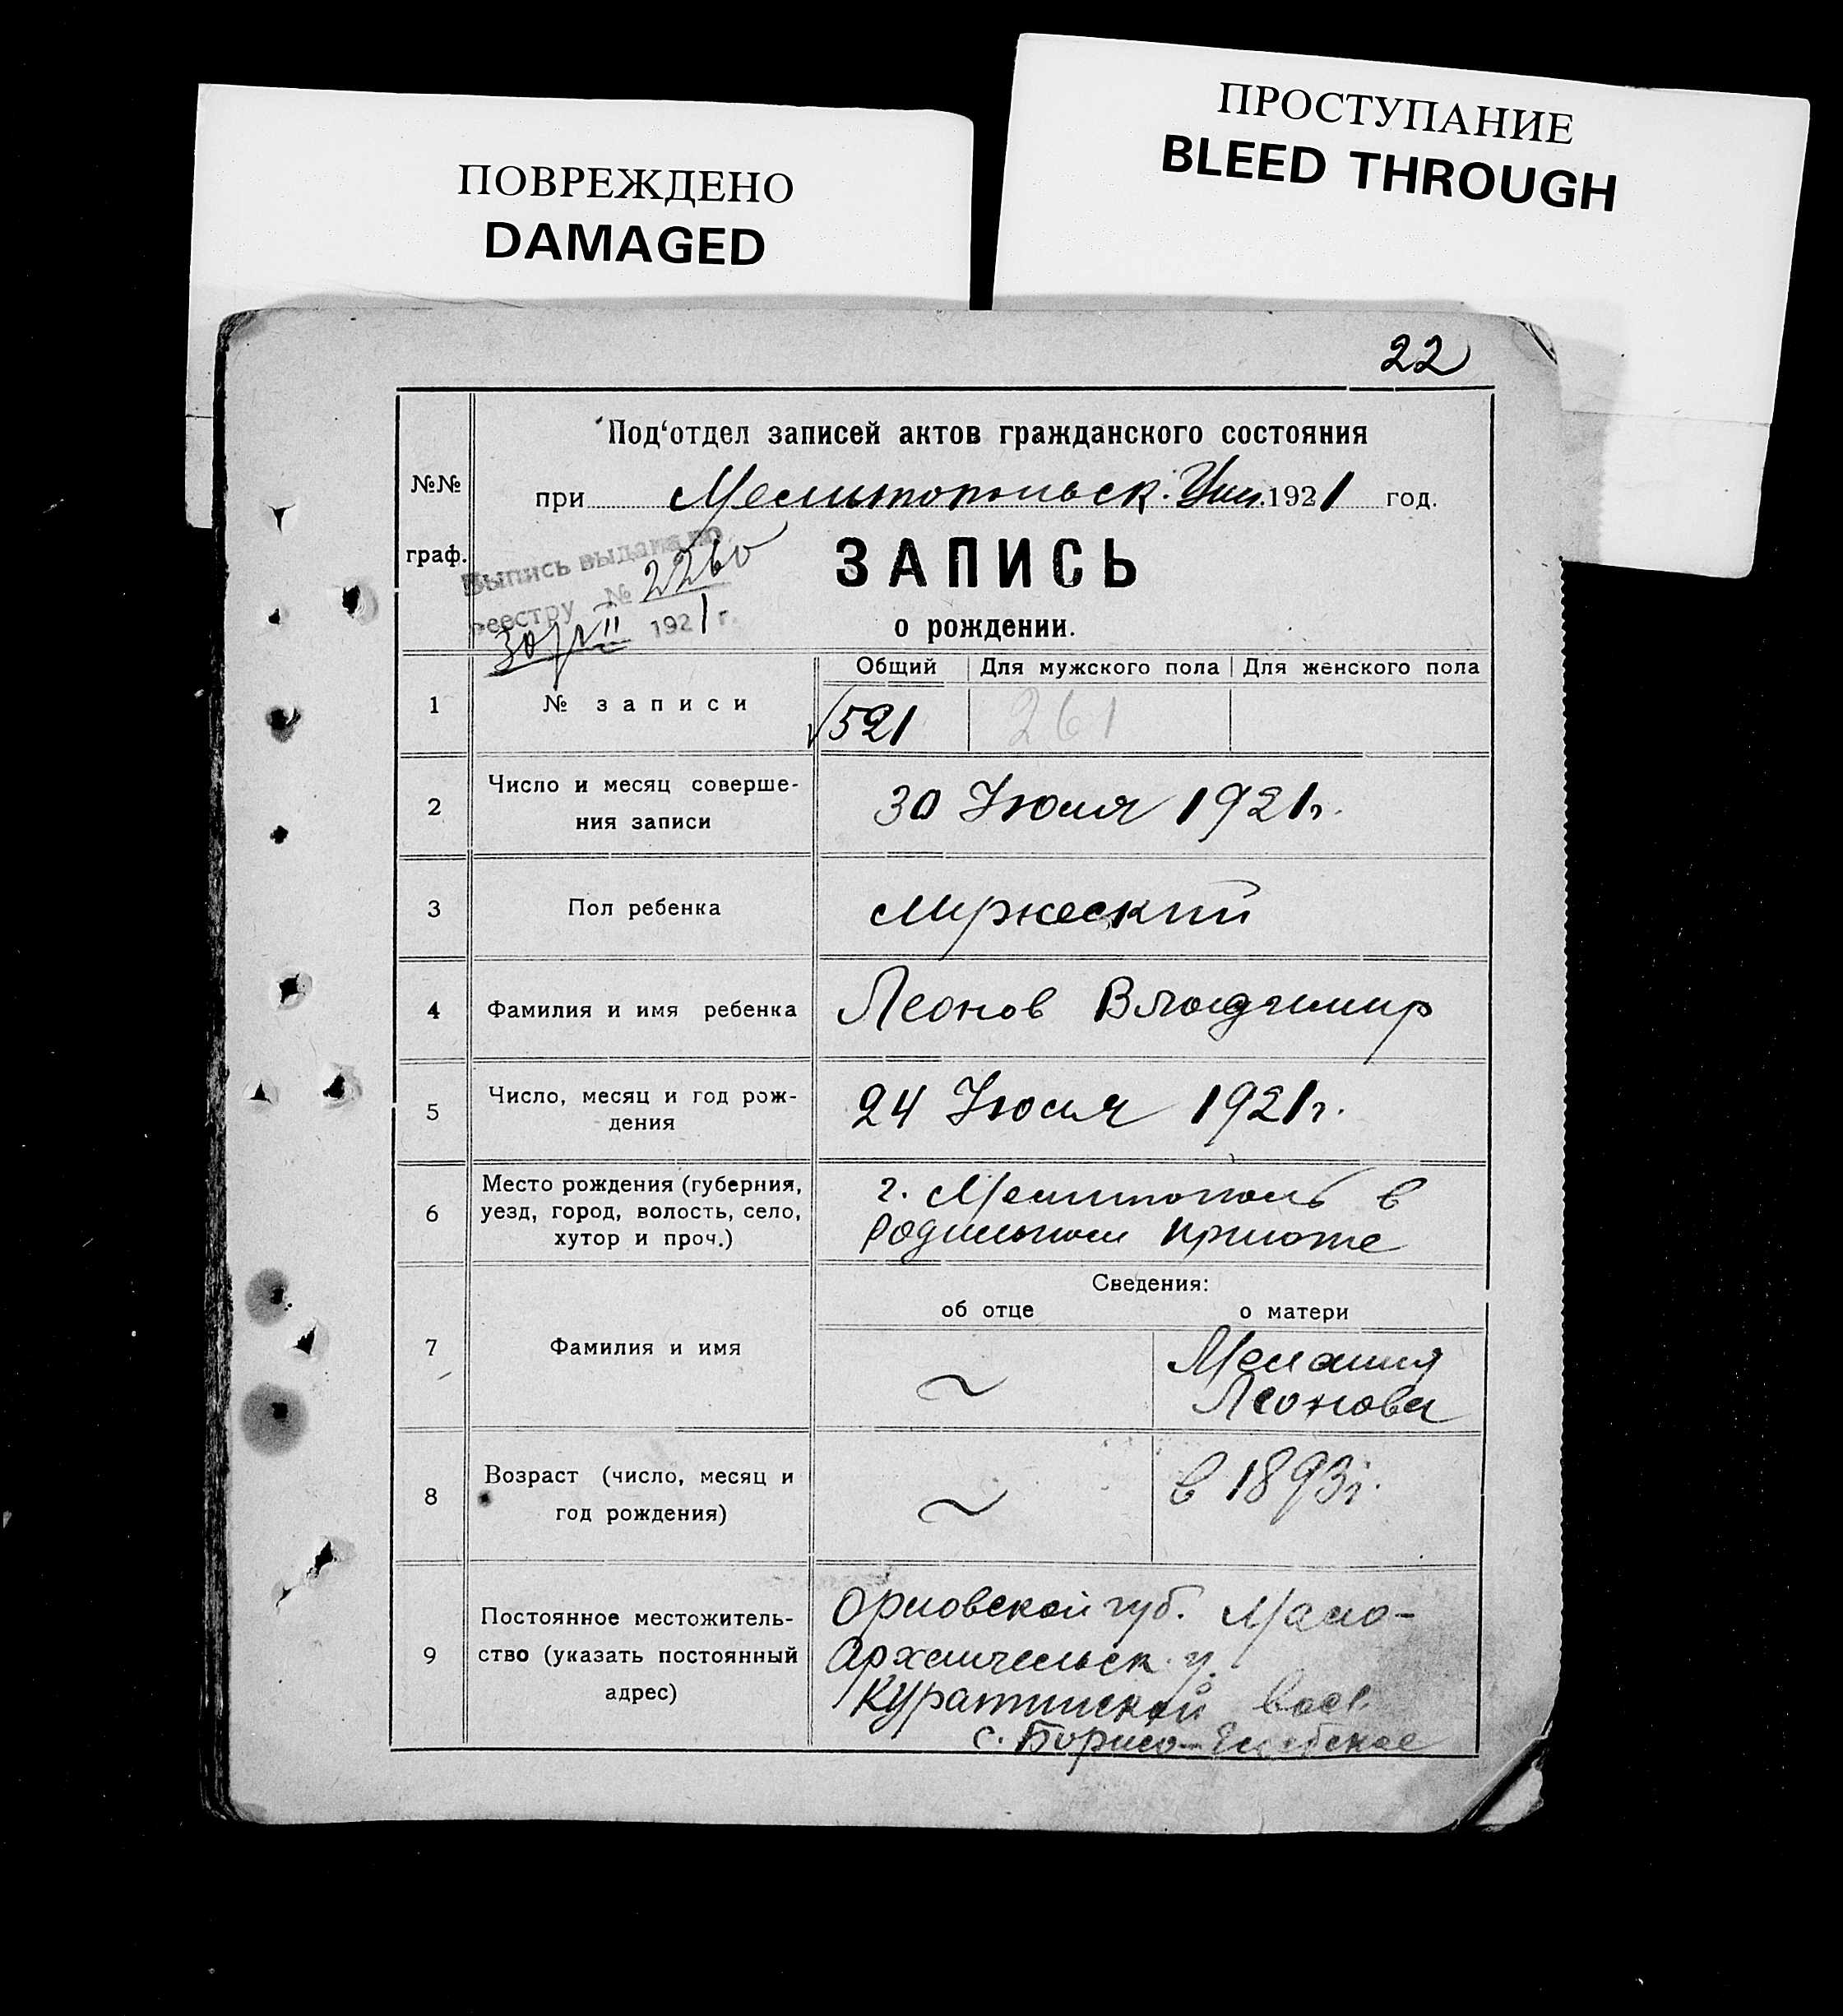 ПОВРЕЖДЕНО
DAMAGED
ПРОСТУПАНИЕ
BLEED THROUGH
22
№№
граф.
Под‘отдел записей актов гражданского состояния
при Мелитопольск. 1921 год.
Выпись выдана по
реестру № 2260
30/VII 1921 г.
ЗАПИСЬ
о рождении.
Общий Для мужского пола Для женского пола
1 № записи 521 261
2 Число и месяц соверше-
ния записи
30 Июля 1921г.
3 Пол ребенка мужеский
4 Фамилия и имя ребенка Леонов Владимир
5 Число, месяц и год рож-
дения
24 Июля 1921г.
6 Место рождения (губерния,
уезд, город, волость, село,
хутор и проч.)
г. Мелитополь в
родильном приюте
Сведения:
об отце о матери
7 Фамилия и имя ~ Мелания
Леонова
8 Возраст (число, месяц и
год рождения)
~ в 1893г.
9 Постоянное местожитель-
ство (указать постоянный
адрес)
Орловской губ. Мало-
Архангельск. у.
вол.
с. Борисо-Глебское